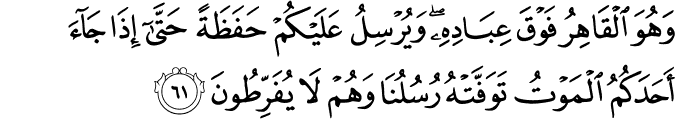 وَهُوَ ٱلْقَاهِرُ فَوْقَ عِبَادِهِۦۖ وَيُرْسِلُ عَلَيْكُمْ حَفَظَةً حَتَّىٰٓ إِذَا جَآءَ
أَحَدَكُمُ ٱلْمَوْتُ تَوَفَّتْهُ رُسُلُنَا وَهُمْ لَا يُفَرِّطُونَ ٦١